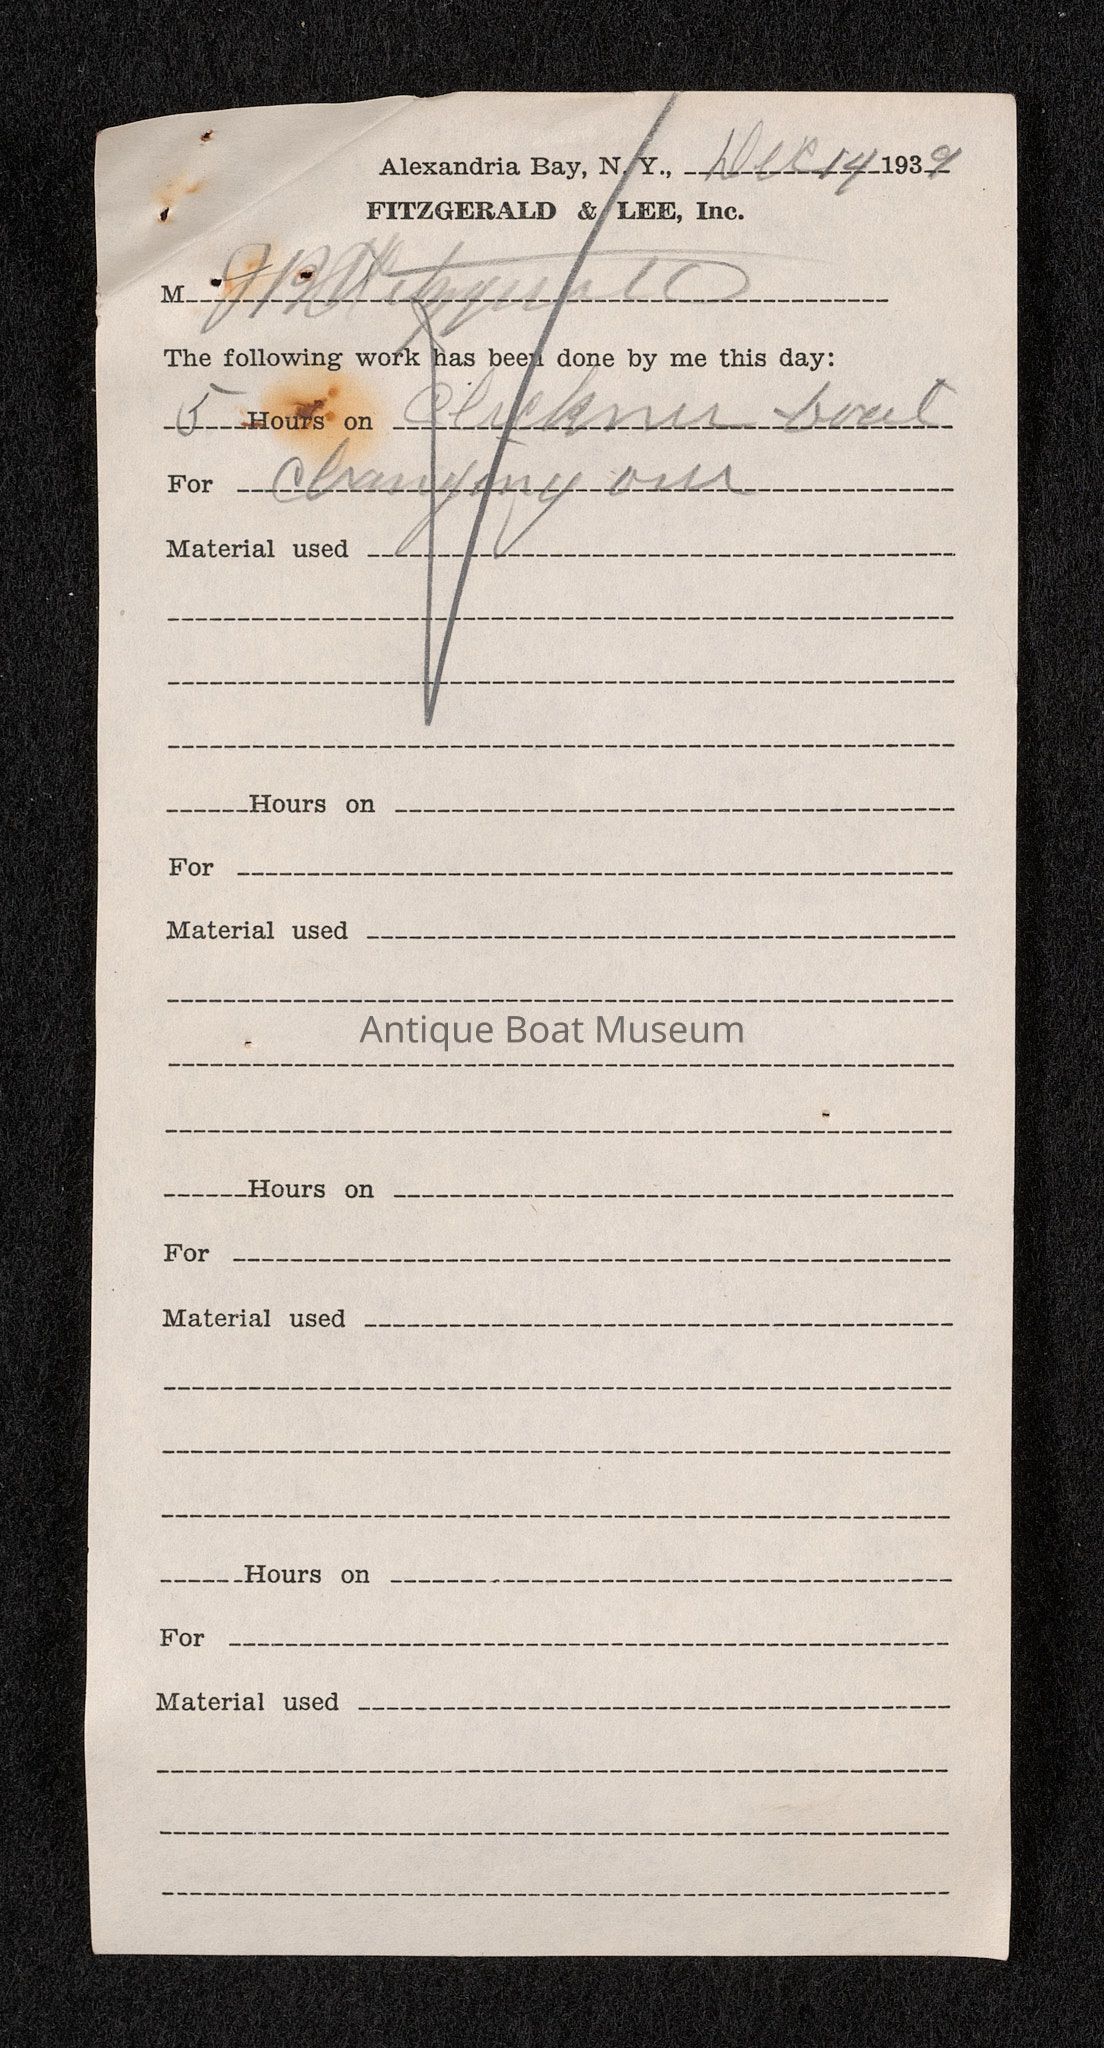 Alexandria Bay, N. Y., Dec 14 1939
FITZGERALD & LEE, Inc.
M Fitzgerald
The following work has been done by me this day:
5 Hours on boat
For Changing over
Material used
Hours on
For
Material used
Antique Boat Museum
Hours on
For
Material used
Hours on
For
Material used